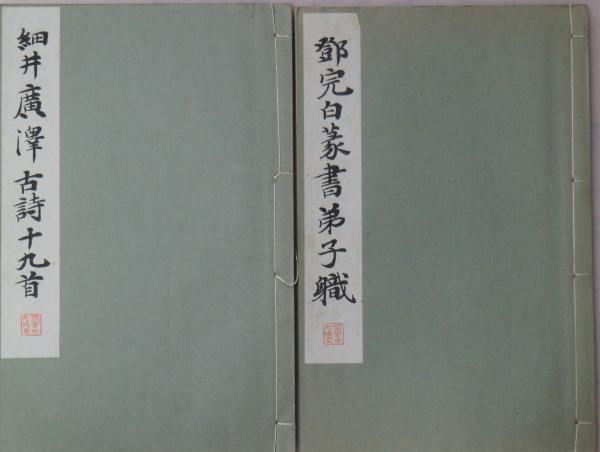 鄧完白篆書弟子軄
細井廣澤古詩十九首